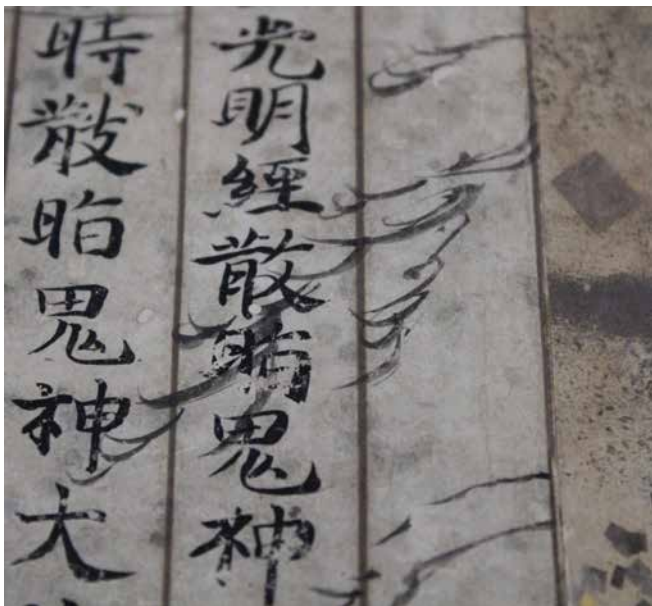 光明經散脂鬼神
時散脂鬼神大